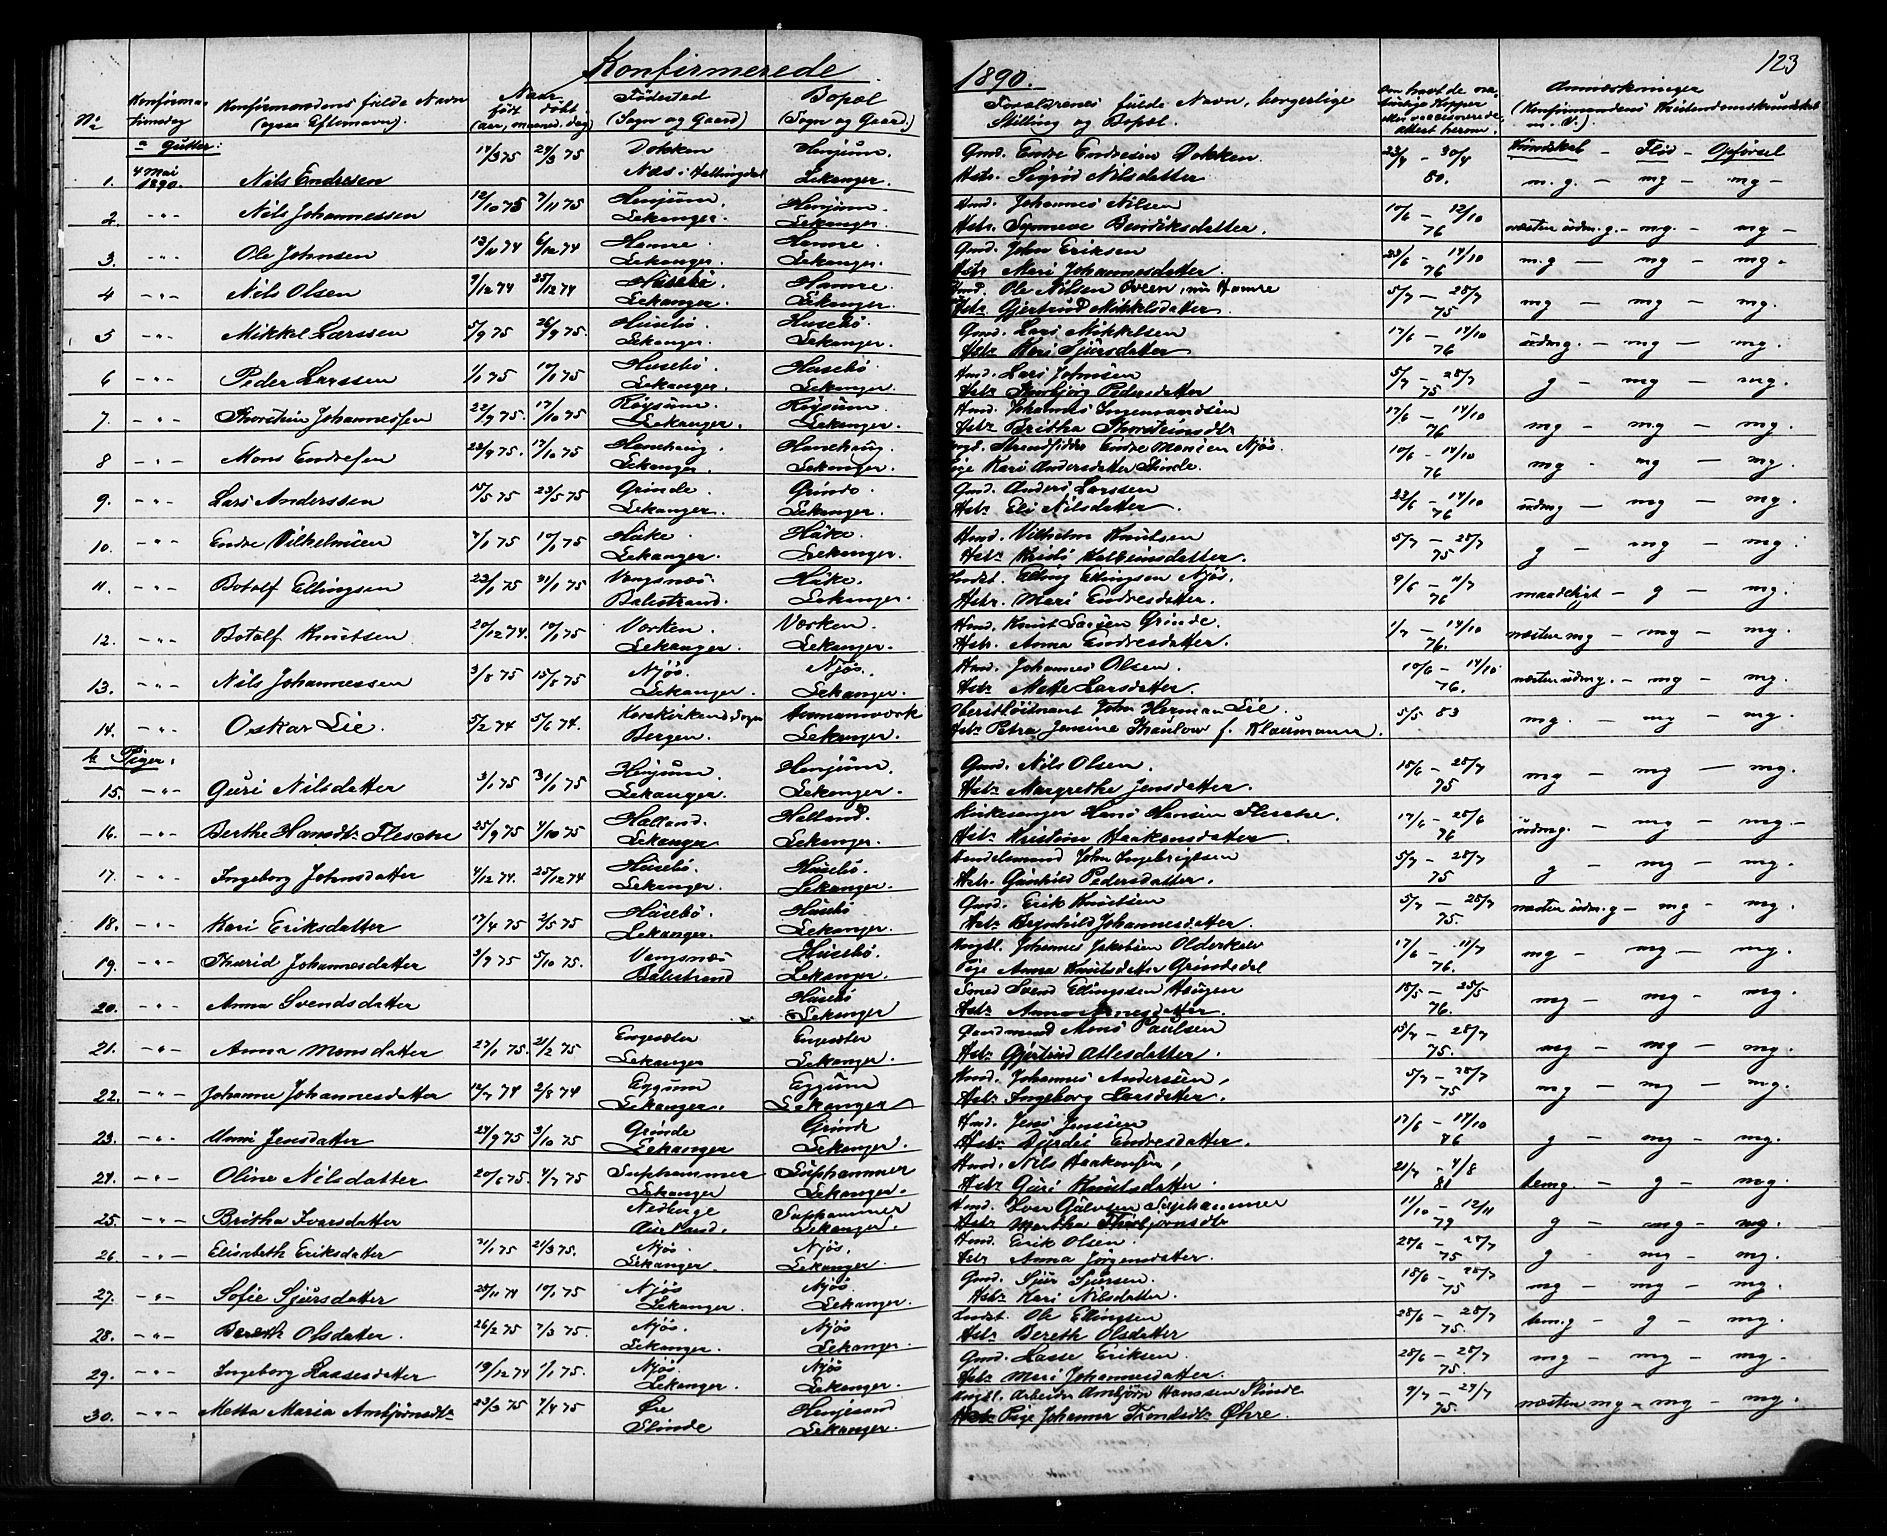 Konfirmerede
1890.
123
No
Konfirma-
tionsdag
Konfirmandens fulde Navn
(ogsaa Efternavn).
Naar
født døbt
(aar, maaned, dag)
Fødested
(Sogn og Gaard)
Bopæl
(Sogn og Gaard)
Forældrenes fulde Navn, borgerlige
Stilling og Bopæl.
Om havt de na-
turlige Kopper
eller vaccinerede,
attest herom.
Anmærkninger
(Konfirmandens Kristendomskundskab
m. v.)
a Gutter:
Kundskab – Flid – Opførsel
1. 4 Mai 1890. Nils Endresen 14/3 75 29/3 75 Dokken Næs i Hallingdal Henjum. Lekanger. Gmd. Endre Endresen Dokken Hstr. Sigrid Nilsdatter 23/4 – 30/4 80. m.g. – mg – mg –
2. -"- Nils Johannessen 12/10 75 7/11 75 Henjum. Lekanger. Henjum. Lekanger. Hmd. Johannes Nilsen Hstr. Synneve Bendiksdatter. 10/6 – 12/10 76 næsten udm.g. – mg. – mg –
3. -"- Ole Johnsen 13/11 74 6/12 74 Hamre. Lekanger. Hamre. Lekanger. Gmd. John Eriksen Hstr Mari Johannesdatter. 23/6 – 14/10 76 m.g – mg – mg.
4 -"- Nils Olsen 9/12 74 25/12 74 Husebø Lekanger. Hamre Lekanger. Hmd. Ole Nilsen Oveen, nu Hamre Hstr Gjertrud Mikkelsdatter. 5/7 – 25/7 75 mg – mg – mg.
5 -"- Mikkel Larssen 5/9 75 26/9 75. Husebø. Lekanger. Husebø. Lekanger. Gmd. Lars Mikkelsen Hstr Kari Sjursdatter 17/6 – 14/10 76 udmg. – mg – mg.
6 -"- Peder Larssen 1/1 75 10/1 75 Husebø Lekanger. Husebø Lekanger. Hmd. Lars Johnsen Hstr Thorbjør Pedersdatter 5/7 – 25/7 75 g – mg – mg.
7. -"- Thorstein Johannessen 22/9 75. 17/10 75 Røysum. Lekanger. Røysum. Lekanger. Hmd. Johannes Ingemundsen Hstr Britha Thorsteinsdtr 17/6 – 14/10 76 mg – mg – mg.
8 -"- Mons Endresen 23/9 75. 17/10 75 Hanehaug. Lekanger. Hanehaug. Lekanger. Strandsidder Endre Monsen Njøs. Pige Kari Andersdatter Slinde. 10/6 – 14/10 76 mg – mg – mg.
9. -"- Lars Anderssen 15/5 75 23/5 75 Grinde. Lekanger. Grinde. Lekanger. Gmd. Anders Larssen Hstr. Eli Nilsdatter. 22/6 – 14/10 76 udmg – mg – mg.
10. -"- Endre Vilhelmsen 7/1 75 10/1 75 Hake. Lekanger. Hake. Lekanger. Hmd. Vilhelm Knutsen Hstr. Kristi datter. 5/7 – 25/7 75 g – mg – mg.
11. -"- Botolf Ellingsen 23/1 75 31/1 75 Vangsnæs. Balestrand. Hake. Lekanger. Indst. Elling Ellingsen Njøs. Hstr. Mari Endresdatter. 9/6 – 11/7 76 maadeligt – g – mg.
12. -"- Botolf Knutsen 20/12 74. 10/1 75 Værken. Lekanger. Værken. Lekanger. Hmd. Knut Larsen Grinde. Hstr. Anna Endresdatter. 1/7 – 14/10 76. næsten mg – mg – mg.
13. -"- Nils Johannessen 3/8 75 15/8 75 Njøs. Lekanger. Njøs. Lekanger. Hmd. Johannes Olsen. Hstr Mette Larsdatter. 10/6 – 14/10 76. næsten udmg. – mg – mg.
14. -"- Oskar Lie. 5/2 74 5/6 74. Korskirkens Sogn Bergen. Lekanger. Oberstløitnant John Herman Lie. Hstr Petra Jensine Thaulow f. 5/5 83 mg. – mg – mg.
b Piger.
15. -"- Guri Nilsdatter 3/1 75 31/1 75 Henjum. Lekanger. Henjum. Lekanger. Gmd. Nils Olsen. Hstr Margrethe Jensdatter. 15/6 – 25/7 75 mg – mg – mg.
16. -"- Berthe Hansdtr. Flesche 25/9 75 4/10 75 Halland. Lekanger Halland. Lekanger. Kirkesanger Hans Hansen Flesche. Hstr Kristine Haakonsdatter. 17/6 – 25/6 76 udmg. – mg – mg. –
17. -"- Ingeborg Johnsdatter 4/12 74. 25/12 74 Husebø. Lekanger. Husebø. Lekanger. Handelsmand John Ingebrigtsen Hstr. Gunhild Pedersdatter. 5/7 – 25/7 75 g – mg – mg.
18. -"- Kari Eriksdatter 17/4 75 2/5 75 Husebø. Lekanger. Husebø Lekanger. Gmd. Erik Knutsen Hstr. Brynhild Johannesdatter. 5/7 – 25/7 75. næsten udm.g – mg – mg.
19. -"- Thurid Johannesdatter 3/9 75 5/10 75. Vangsnæs Balestrand Husebø. Lekanger. Ungkl. Johannes Jakobsen Pige Anna Knutsdatter Grindedal 17/6 – 11/7 76. mg – mg – mg.
20. -"- Anna Svendsdatter Husebø Lekanger Smed Svend Ellingssen Haugen Hstr Anna datter. 15/5 – 25/5 76. mg – mg – mg.
21. -"- Anna Monsdatter 27/1 75. 21/2 75 Engesæter Lekanger Engesæter Lekanger. Gaardmand Mons Paulsen Hstr Gjertrud Atlesdatter. 15/7 – 25/7 75. mg – mg – mg.
22. -"- Johanne Johannesdatter 12/7 74 2/8 74 Eggum Lekanger. Eggum Lekanger Hmd. Johannes Anderssen, Hstr Ingeborg Larsdatter. 5/7 – 25/7 75 mg – mg – mg.
23. -"- Unni Jensdatter 24/9 75 3/10 75 Grinde Lekanger Grinde Lekanger. Hmd. Jens Jenssen Hstr. Durdei Endresdatter. 17/6 – 14/10 76 g – mg – mg.
24. -"- Oline Nilsdatter 20/6 75. 4/7 75 Suphammer Lekanger Suphammer Lekanger. Hmd. Nils Haakonsen, Hstr. Guri Knutsdatter. 21/7 – 4/8 81 temg. – g – mg.
25. -"- Britha Ivarsdatter Nedberge Aurland. Suphammer Lekanger. Hmd. Iver Suphammer Hstr. Martha Thorbjørnsdtr 11/10 – 12/11 79 g – mg – mg.
26. -"- Elisabeth Eriksdatter 31/1 75 21/3 75. Njøs. Lekanger. Njøs. Lekanger. Hmd. Erik Olsen. Hstr Anna Jørgensdatter. 25/6 – 25/7 75 g – mg – mg.
27. -"- Sofie Sjursdatter 25/11 74 10/1 75 Njøs Lekanger. Njøs Lekanger. Gmd. Sjur Sjursen. Hstr Kari Nilsdatter. 15/6 – 25/7 75 mg – mg – mg.
28. -"- Bereth Olsdatter. 26/2 75 7/3 75. Njøs. Lekanger. Njøs Lekanger. Indst. Ole Ellingsen Hstr Bereth Olsdatter 25/6 – 25/7 75. tem.g – g – mg.
29. -"- Ingeborg Lassesdatter 19/12 74 1/1 75. Njøs. Lekanger. Njøs Lekanger. Gmd. Lasse Eriksen. Hstr Mari Johannesdatter. 25/6 – 25/7 75. mg – mg – mg.
30. -"- Metta Maria Ambjørnsdtr 23/3 75 4/4 75 Øre Slinde Henjesand Lekanger. Ungkl. Arbeider Ambjørn Hanssen Slinde Pige Johanna Trondsdtr Øhre. 9/7 – 24/7 75. næsten mg – mg – mg.